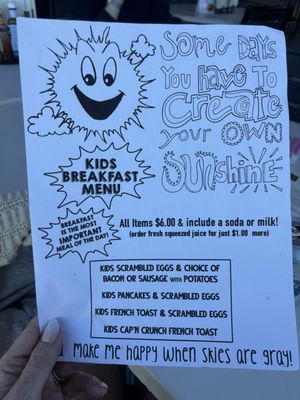 Some Days
You have To
Create
your OWN
Sunshine
KIDS
BREAKFAST
MENU
BREAKFAST
IS THE MOST
IMPORTANT
MEAL OF THE DAY!
All Items $6.00 & include a soda or milk!
(order fresh squeezed juice for just $1.00 more)
KIDS SCRAMBLED EGGS & CHOICE OF
BACON OR SAUSAGE WITH POTATOES
KIDS PANCAKES & SCRAMBLED EGGS
KIDS FRENCH TOAST & SCRAMBLED EGGS
KIDS CAP'N CRUNCH FRENCH TOAST
make me happy when skies are gray!